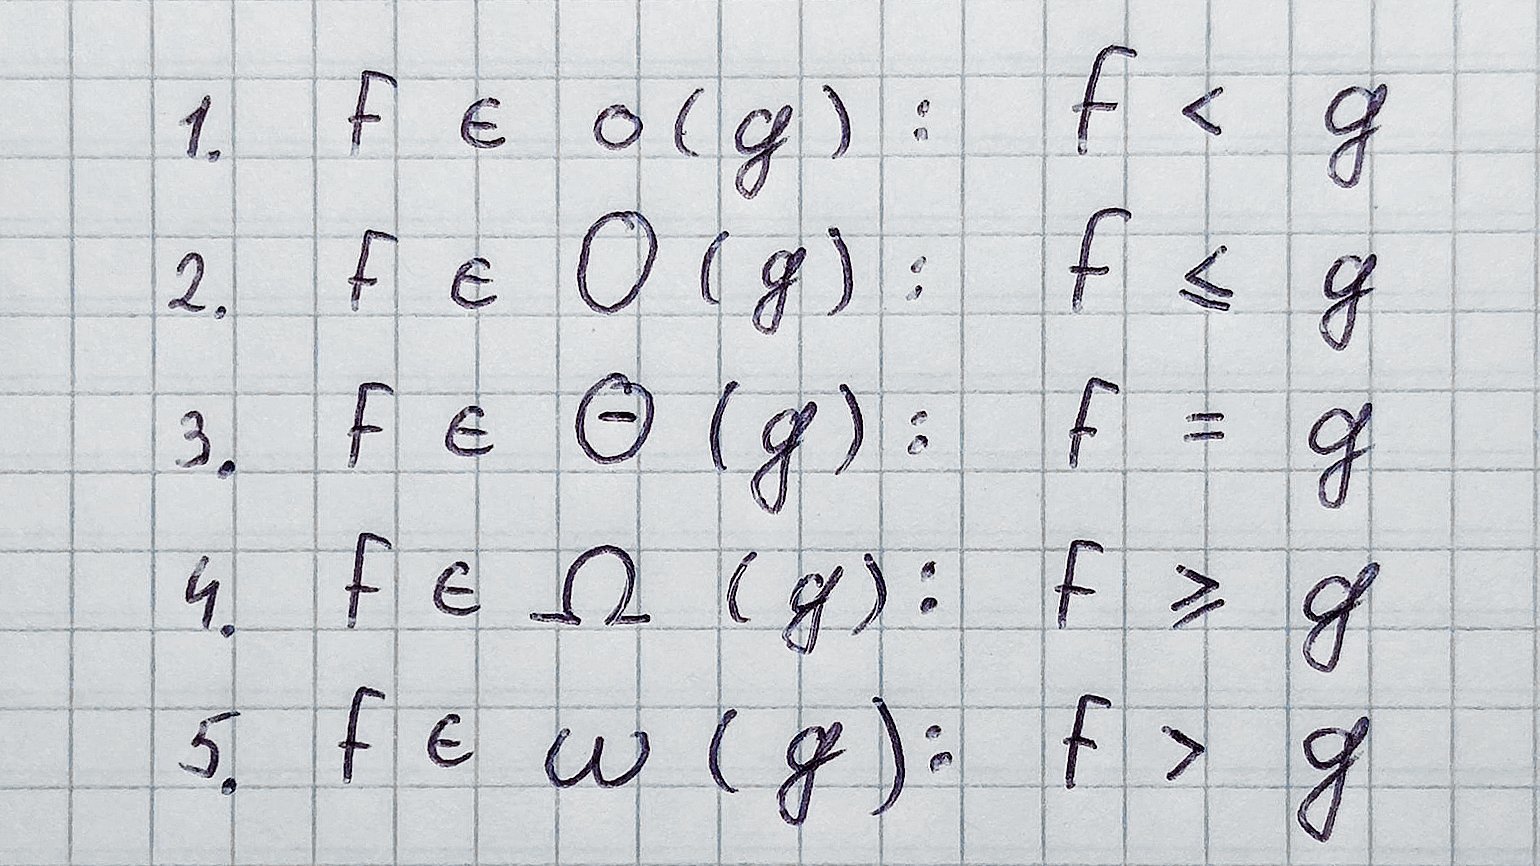 1. f ∈ o(g): f < g
2. f ∈ O(g): f ⩽ g
3. f ∈ Θ(g): f = g
4. f ∈ Ω(g): f ⩾ g
5. f ∈ ω(g): f > g